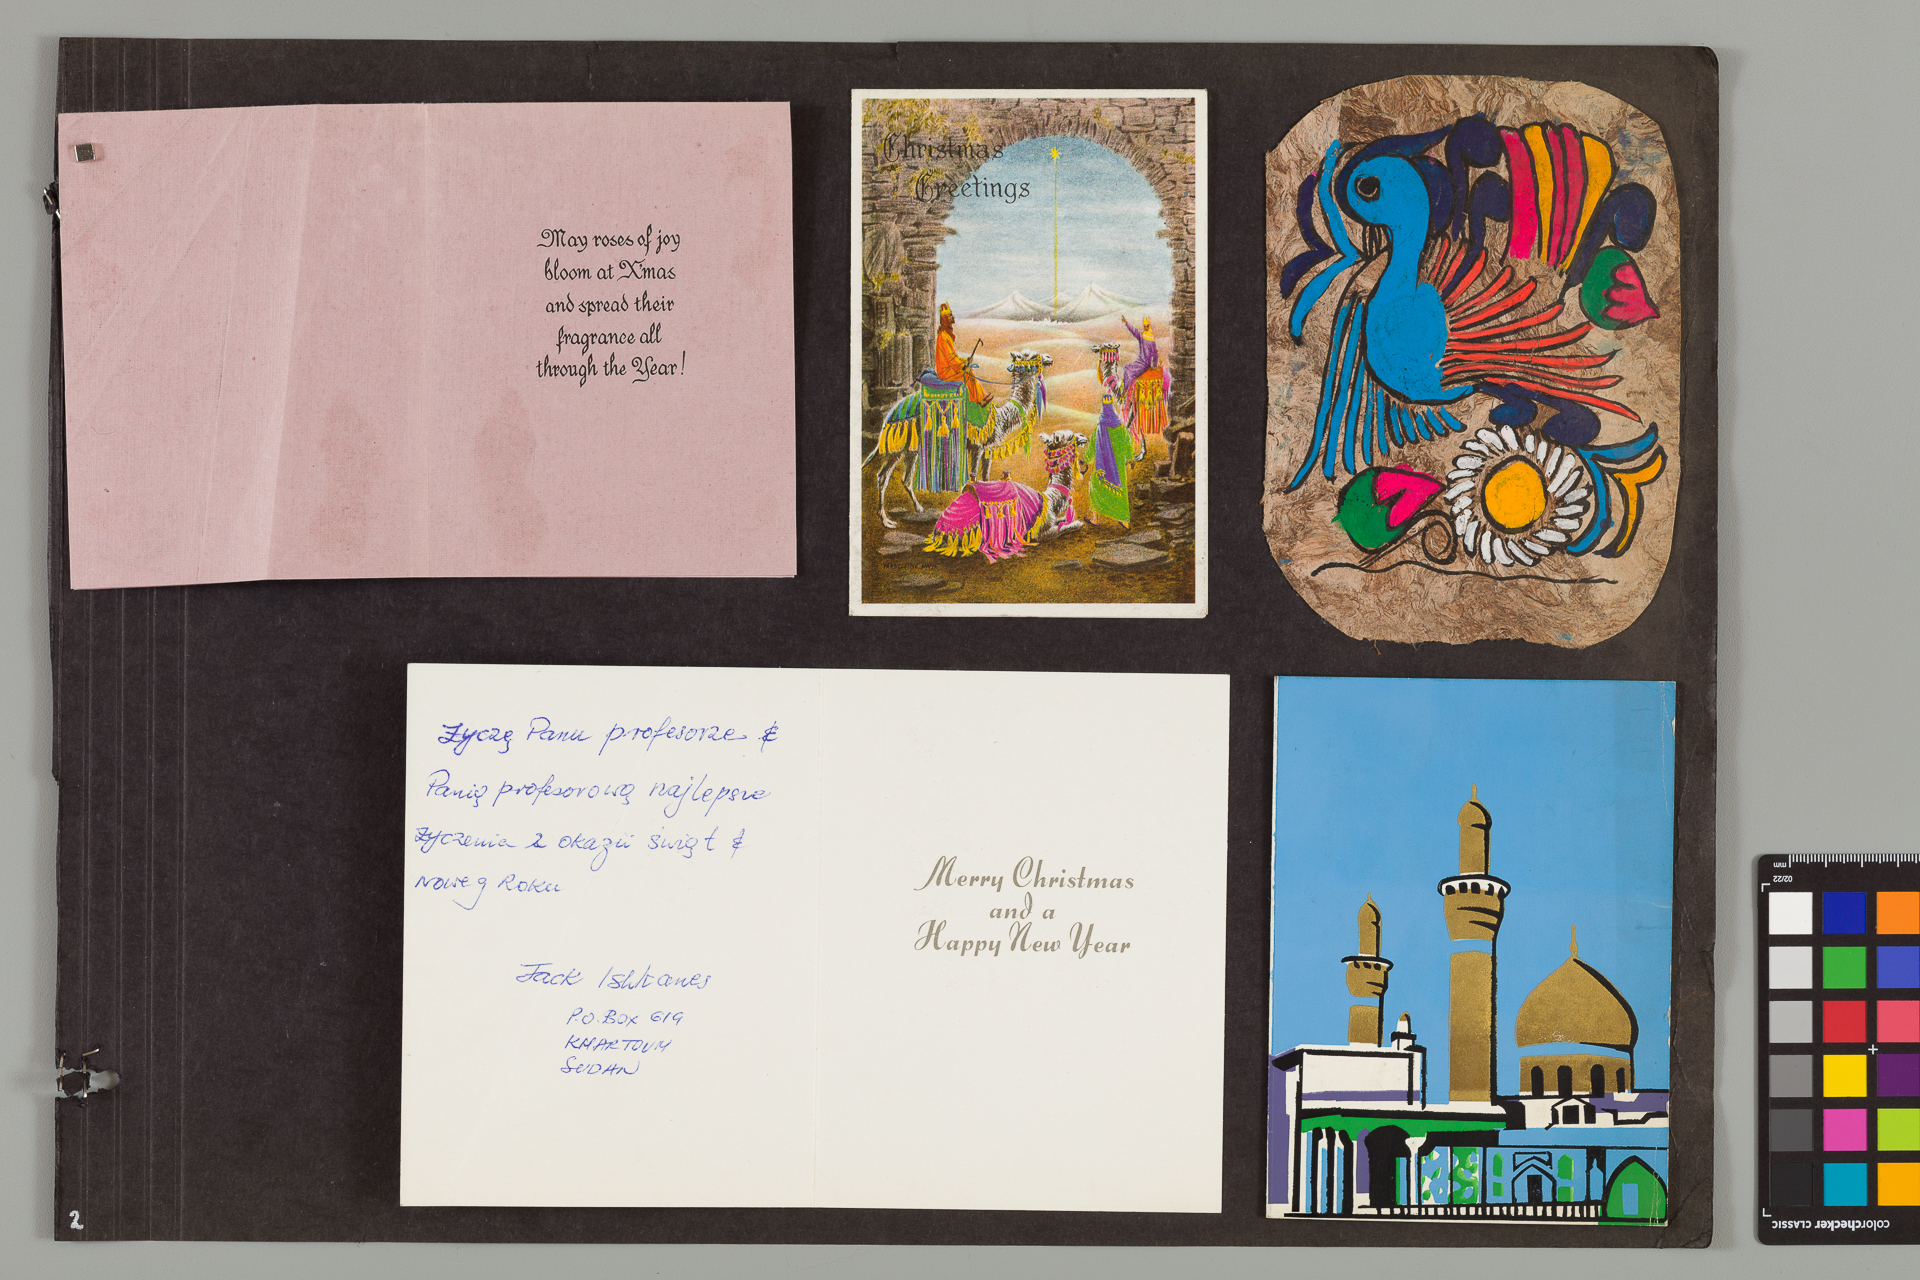 May roses of joy
bloom at X'mas
and spread their
fragrance all
through the Year!
Christmas
Greetings
Życzę Panu profesorze &
Panią profesorową najlepsze
Życzenia z okazii świąt &
noweg Roku
Jack Ishkanes
P.O. BOX 619
KHARTOUM
SUDAN
Merry Christmas
and a
Happy New Year
2
mm
02/22
colorchecker CLASSIC